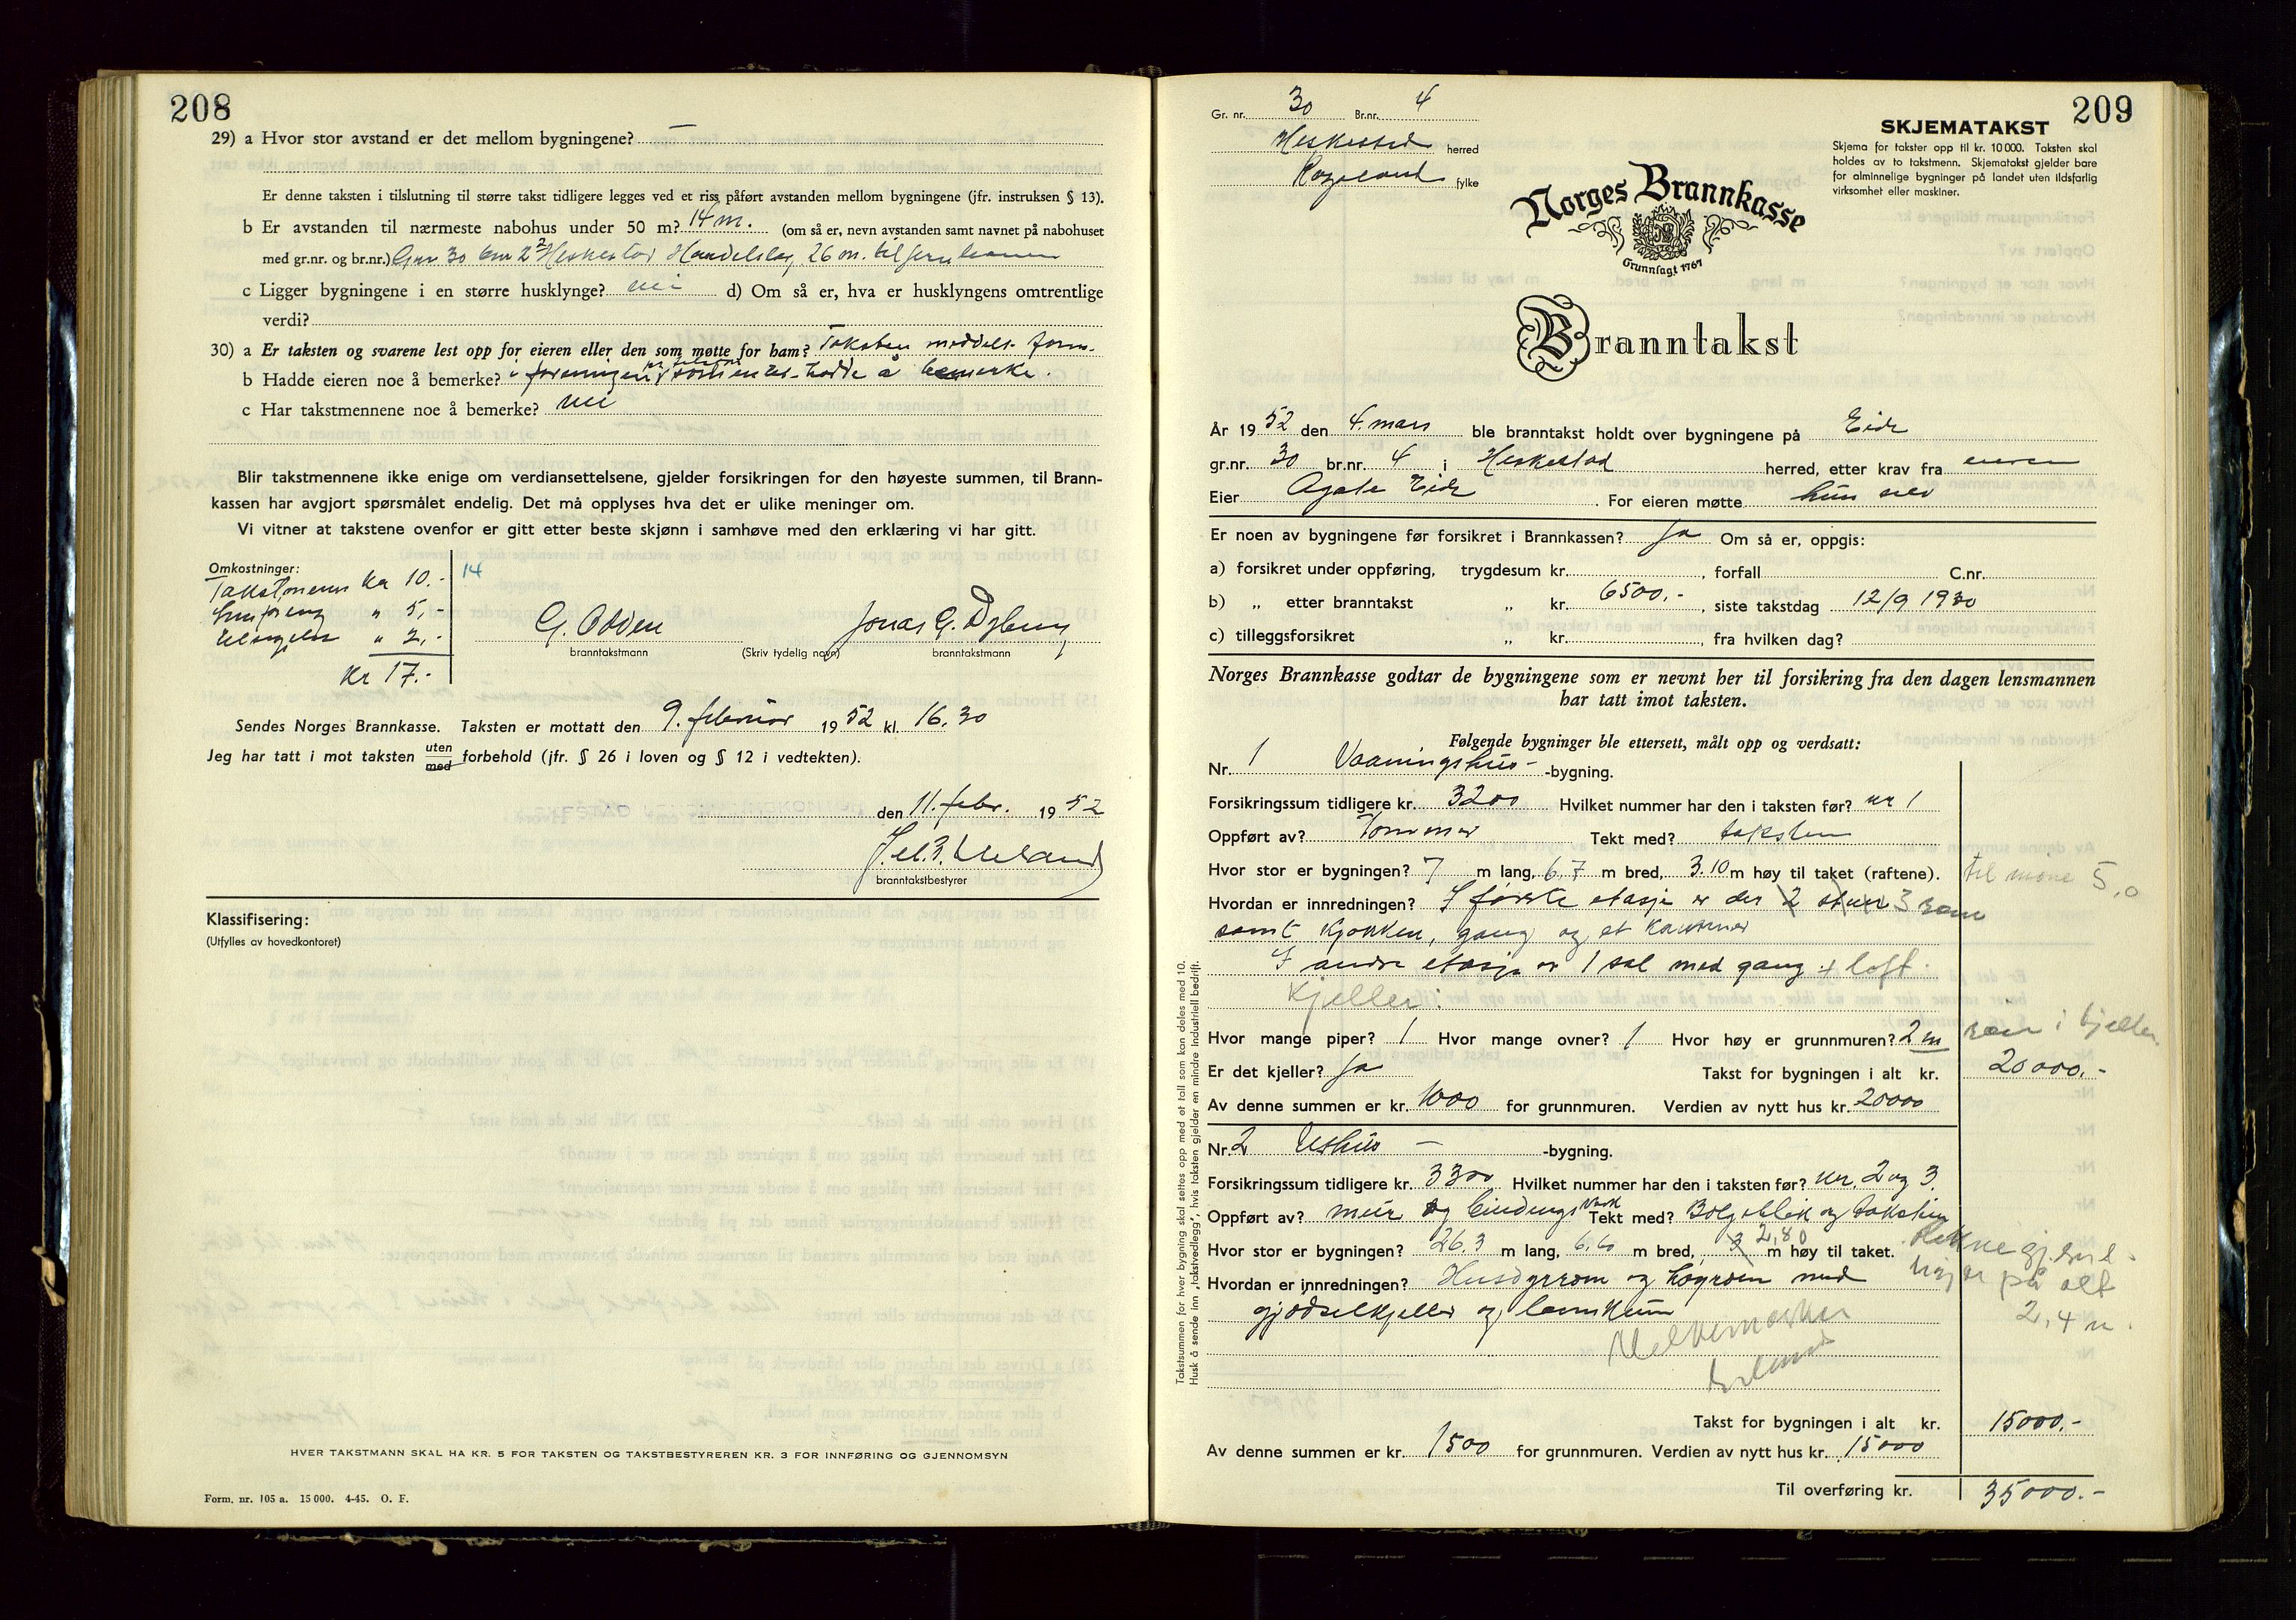 208
29) a Hvor stor avstand er det mellom bygningene? —
Er denne taksten i tilslutning til større takst tidligere legges ved et riss påført avstanden mellom bygningene (jfr. instruksen § 13).
b Er avstanden til nærmeste nabohus under 50 m? 14 m. (om så er, nevn avstanden samt navnet på nabohuset
med gr.nr. og br.nr.) Gnr 30 bnr 2 Heskestad Handelslag, 26 m. til jernbanen
c Ligger bygningene i en større husklynge? nei d) Om så er, hva er husklyngens omtrentlige
verdi?
30) a Er taksten og svarene lest opp for eieren eller den som møtte for ham? Taksten meddelt form.
b Hadde eieren noe å bemerke? i foreningen pr telefon som hadde å bemerke.
c Har takstmennene noe å bemerke? nei
Blir takstmennene ikke enige om verdiansettelsene, gjelder forsikringen for den høyeste summen, til Brann-
kassen har avgjort spørsmålet endelig. Det må opplyses hva det er ulike meninger om.
Vi vitner at takstene ovenfor er gitt etter beste skjønn i samhøve med den erklæring vi har gitt.
Omkostninger:
Takstmenn kr 10.- 14
" 5,-
" 2,-
kr 17.-
G. Odden Jonas G. Dybing
branntakstmann (Skriv tydelig navn) branntakstmann
Sendes Norges Brannkasse. Taksten er mottatt den 9. februar 1952 kl. 16.30
Jeg har tatt i mot taksten uten med forbehold (jfr. § 26 i loven og § 12 i vedtekten).
den 11. febr. 1952
Ueland
branntakstbestyrer
Klassifisering:
(Utfylles av hovedkontoret)
HVER TAKSTMANN SKAL HA KR. 5 FOR TAKSTEN OG TAKSTBESTYREREN KR. 3 FOR INNFØRING OG GJENNOMSYN
Form. nr. 105 a. 15 000. 4-45. O. F.
209
Gr. nr. 30 Br.nr. 4
Heskestad herred
Rogaland fylke
SKJEMATAKST
Skjema for takster opp til kr. 10 000. Taksten skal
holdes av to takstmenn. Skjematakst gjelder bare
for alminnelige bygninger på landet uten ildsfarlig
virksomhet eller maskiner.
Norges Brannkasse
Grunnlagt 1767
Branntakst
År 1952 den 4. mars ble branntakst holdt over bygningene på Eide
gr.nr. 30 br.nr. 4 i Heskestad herred, etter krav fra eieren
Eier Agate Eide For eieren møtte hun selv
Er noen av bygningene før forsikret i Brannkassen? Ja Om så er, oppgis:
a) forsikret under oppføring, trygdesum kr. , forfall C.nr.
b) „ etter branntakst „ kr. 6500.- , siste takstdag 12/9 1930
c) tilleggsforsikret „ kr. , fra hvilken dag?
Norges Brannkasse godtar de bygningene som er nevnt her til forsikring fra den dagen lensmannen
har tatt imot taksten.
Følgende bygninger ble ettersett, målt opp og verdsatt:
Nr. 1 Vaaningshus- -bygning.
Forsikringssum tidligere kr. 3200 Hvilket nummer har den i taksten før? nr 1
Oppført av? Tømmer Tekt med? taksten
Hvor stor er bygningen? 7 m lang, 6.7 m bred, 3.10 m høy til taket (raftene). til møne 5,0
Hvordan er innredningen? I første etasje er der 2 stuer 3 rom
samt kjøkken, gang og et kammer
I andre etasje er 1 sal med gang + loft.
Kjeller:
Hvor mange piper? 1 Hvor mange ovner? 1 Hvor høy er grunnmuren? 2 m rom i kjeller
Er det kjeller? Ja Takst for bygningen i alt kr. 20000.-
Av denne summen er kr. 1000 for grunnmuren. Verdien av nytt hus kr. 20000
Nr. 2 Uthus — -bygning.
Forsikringssum tidligere kr. 3300 Hvilket nummer har den i taksten før? nr. 2 og 3.
Oppført av? mur og bindingsverk Tekt med? Bølgeblik og taksten
Hvor stor er bygningen? 26.3 m lang, 6.60 m bred, 3 2,80 m høy til taket. Rekne gj.snl.
Hvordan er innredningen? Husdyrrom og høyrom med høyde på alt
gjødselkjeller og landkum 2,4 m.
Melkemaskin
Takstsummen for hver bygning skal settes opp med et tall som kan deles med 10.
Husk å sende inn „takstvedlegg", hvis taksten gjelder en mindre industriell bedrift.
Takst for bygningen i alt kr. 15000.-
Av denne summen er kr. 1500 for grunnmuren. Verdien av nytt hus kr. 15000
Til overføring kr. 35000.-